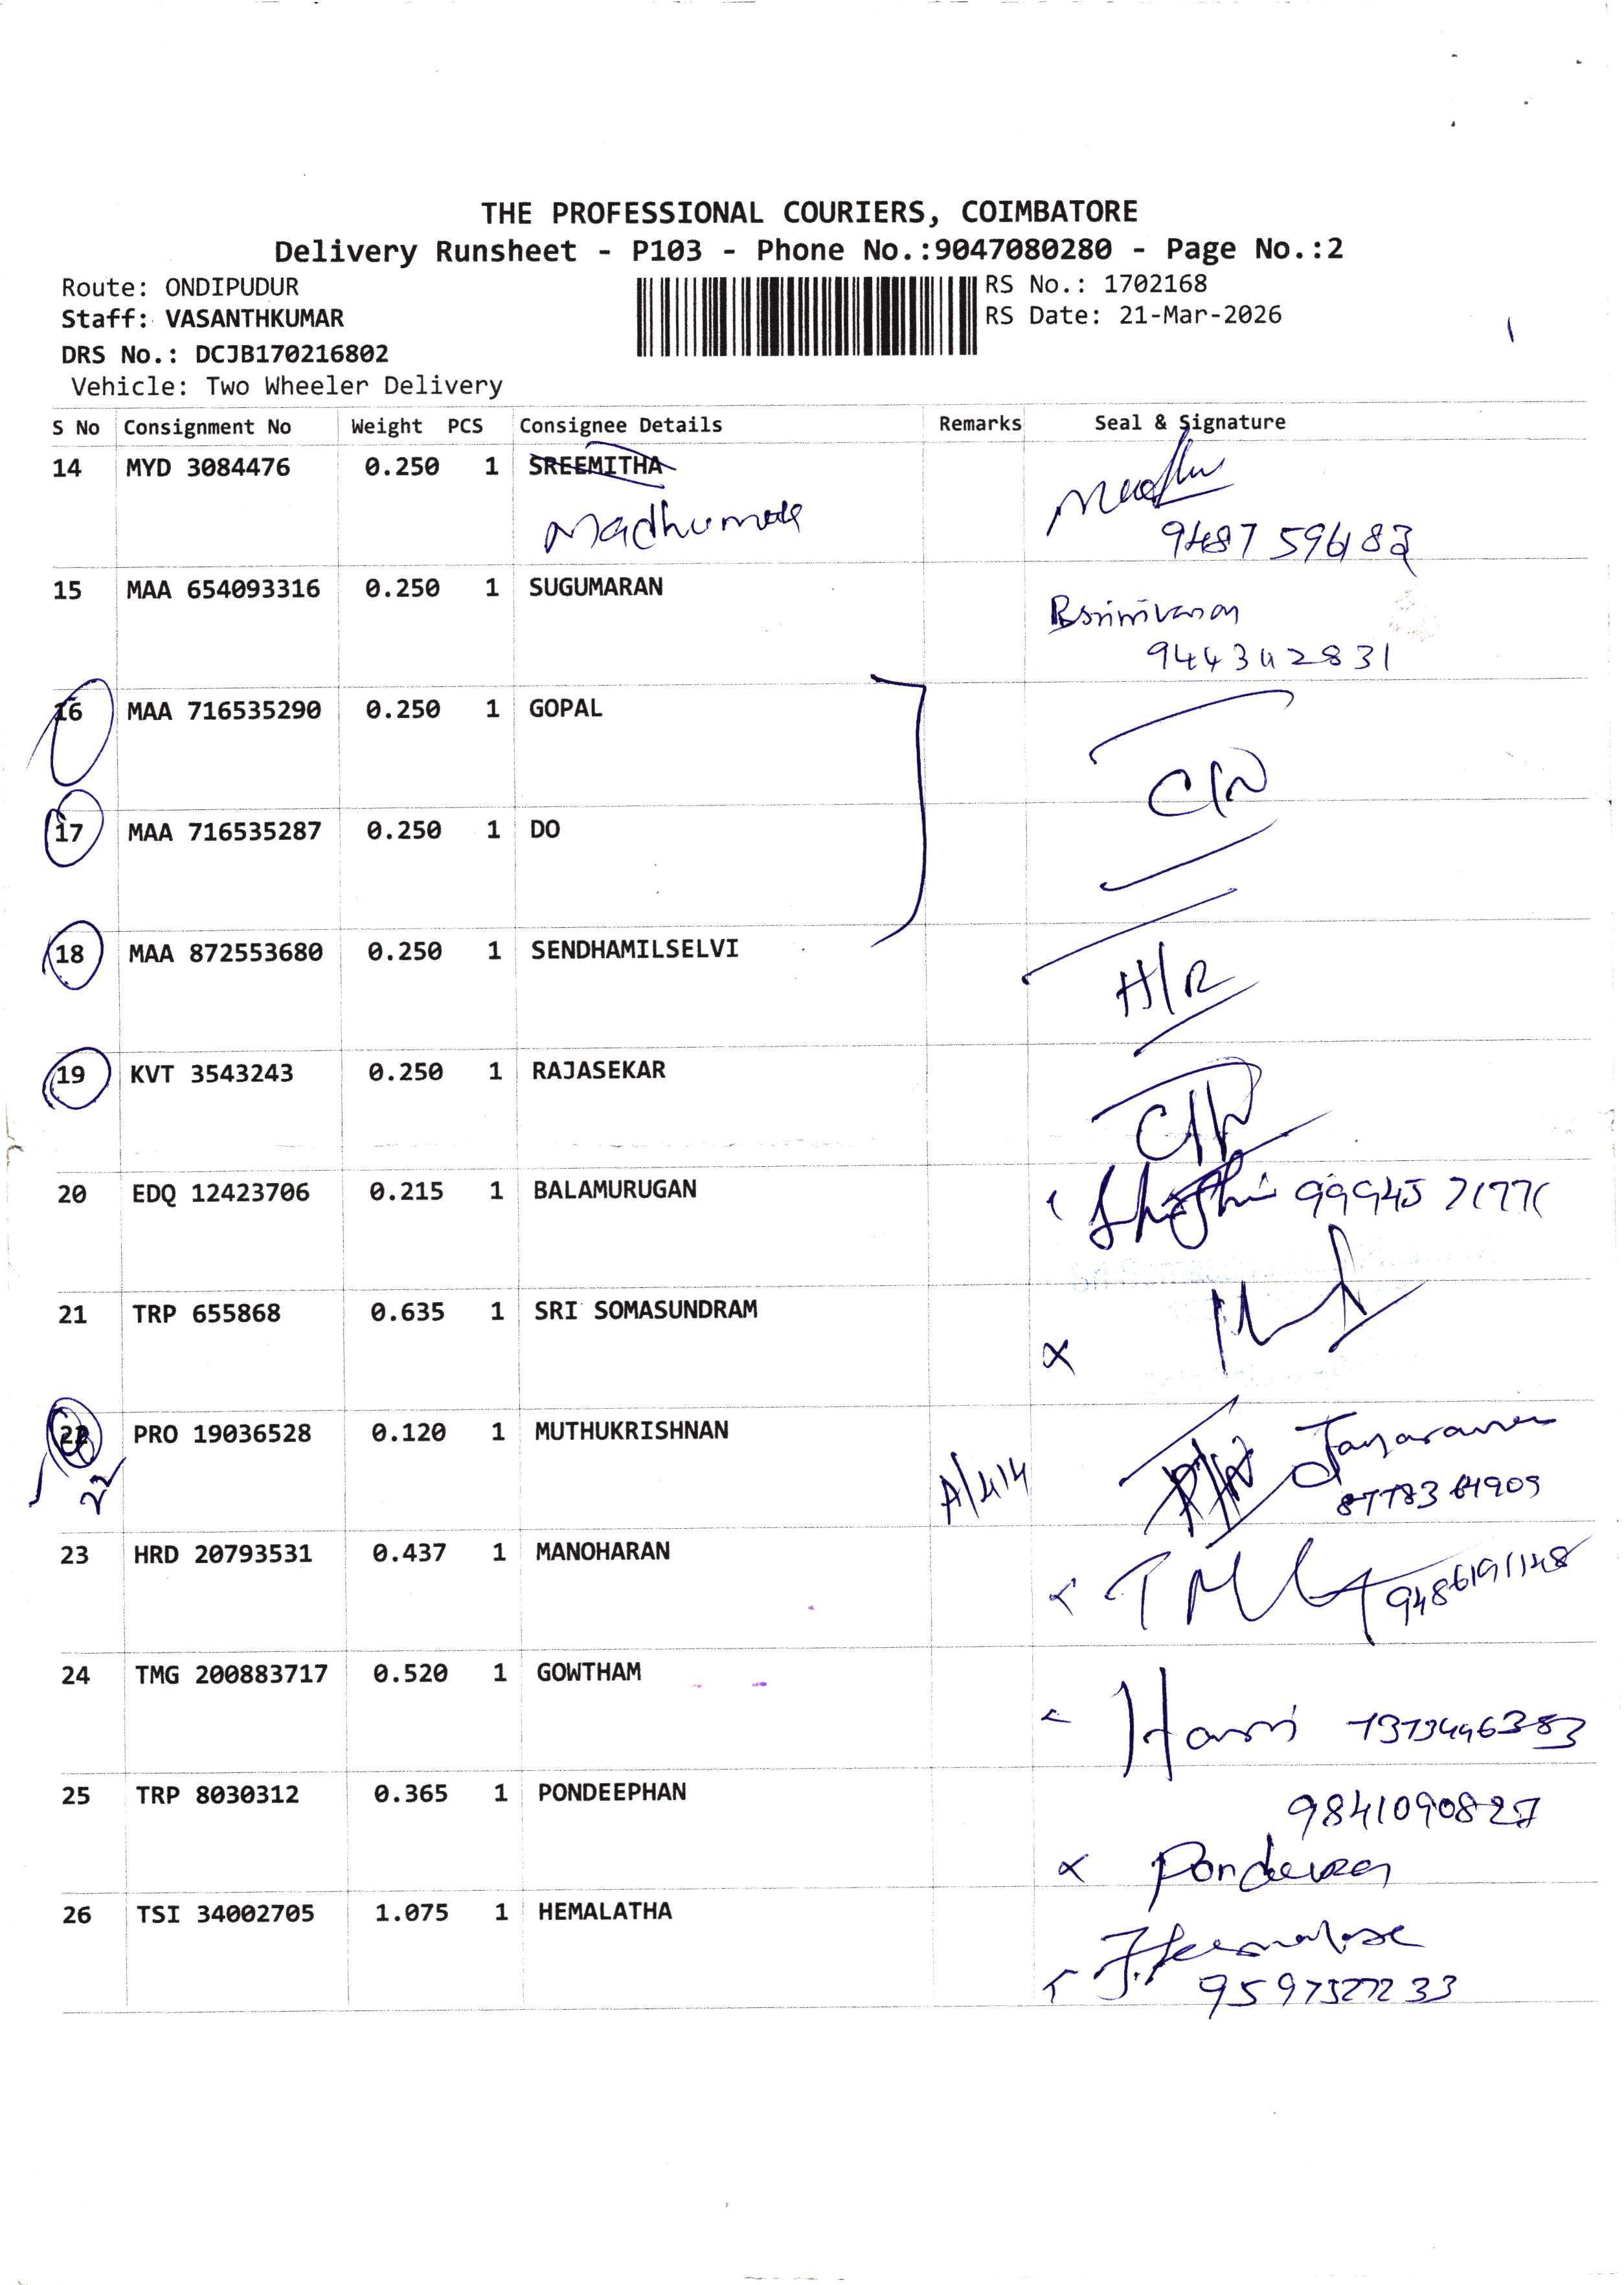 THE PROFESSIONAL COURIERS, COIMBATORE
Delivery Runsheet - P103 - Phone No.:9047080280 - Page No.:2
Route: ONDIPUDUR
RS No.: 1702168
Staff: VASANTHKUMAR
RS Date: 21-Mar-2026
DRS No.: DCJB170216802
Vehicle: Two Wheeler Delivery
S No Consignment No Weight PCS Consignee Details Remarks Seal & Signature
14 MYD 3084476 0.250 1 SREEMITHA
15 MAA 654093316 0.250 1 SUGUMARAN
16 MAA 716535290 0.250 1 GOPAL
17 MAA 716535287 0.250 1 DO
18 MAA 872553680 0.250 1 SENDHAMILSELVI
H/R
19 KVT 3543243 0.250 1 RAJASEKAR
20 EDQ 12423706 0.215 1 BALAMURUGAN
21 TRP 655868 0.635 1 SRI SOMASUNDRAM
22 PRO 19036528 0.120 1 MUTHUKRISHNAN
23 HRD 20793531 0.437 1 MANOHARAN
9486191148
24 TMG 200883717 0.520 1 GOWTHAM
25 TRP 8030312 0.365 1 PONDEEPHAN
9841090827
26 TSI 34002705 1.075 1 HEMALATHA